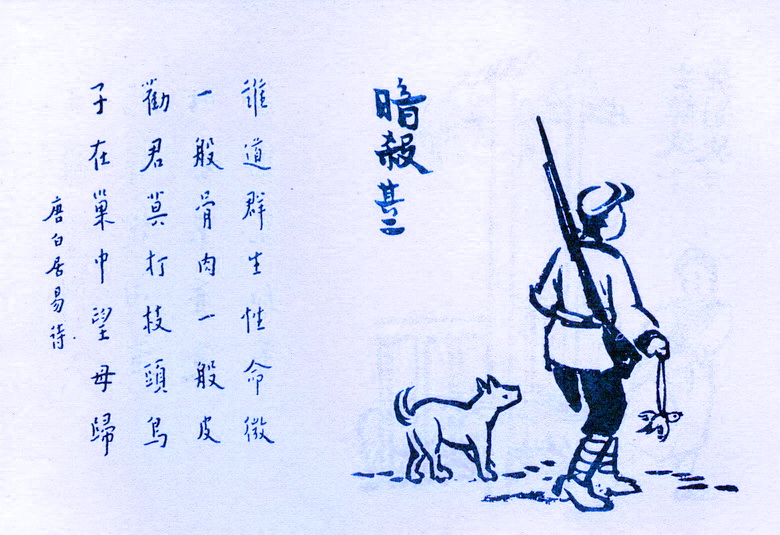 暗殺其二
誰道群生性命微
一般骨肉一般皮
勸君莫打枝頭鳥
子在巢中望母歸
唐白居易詩.